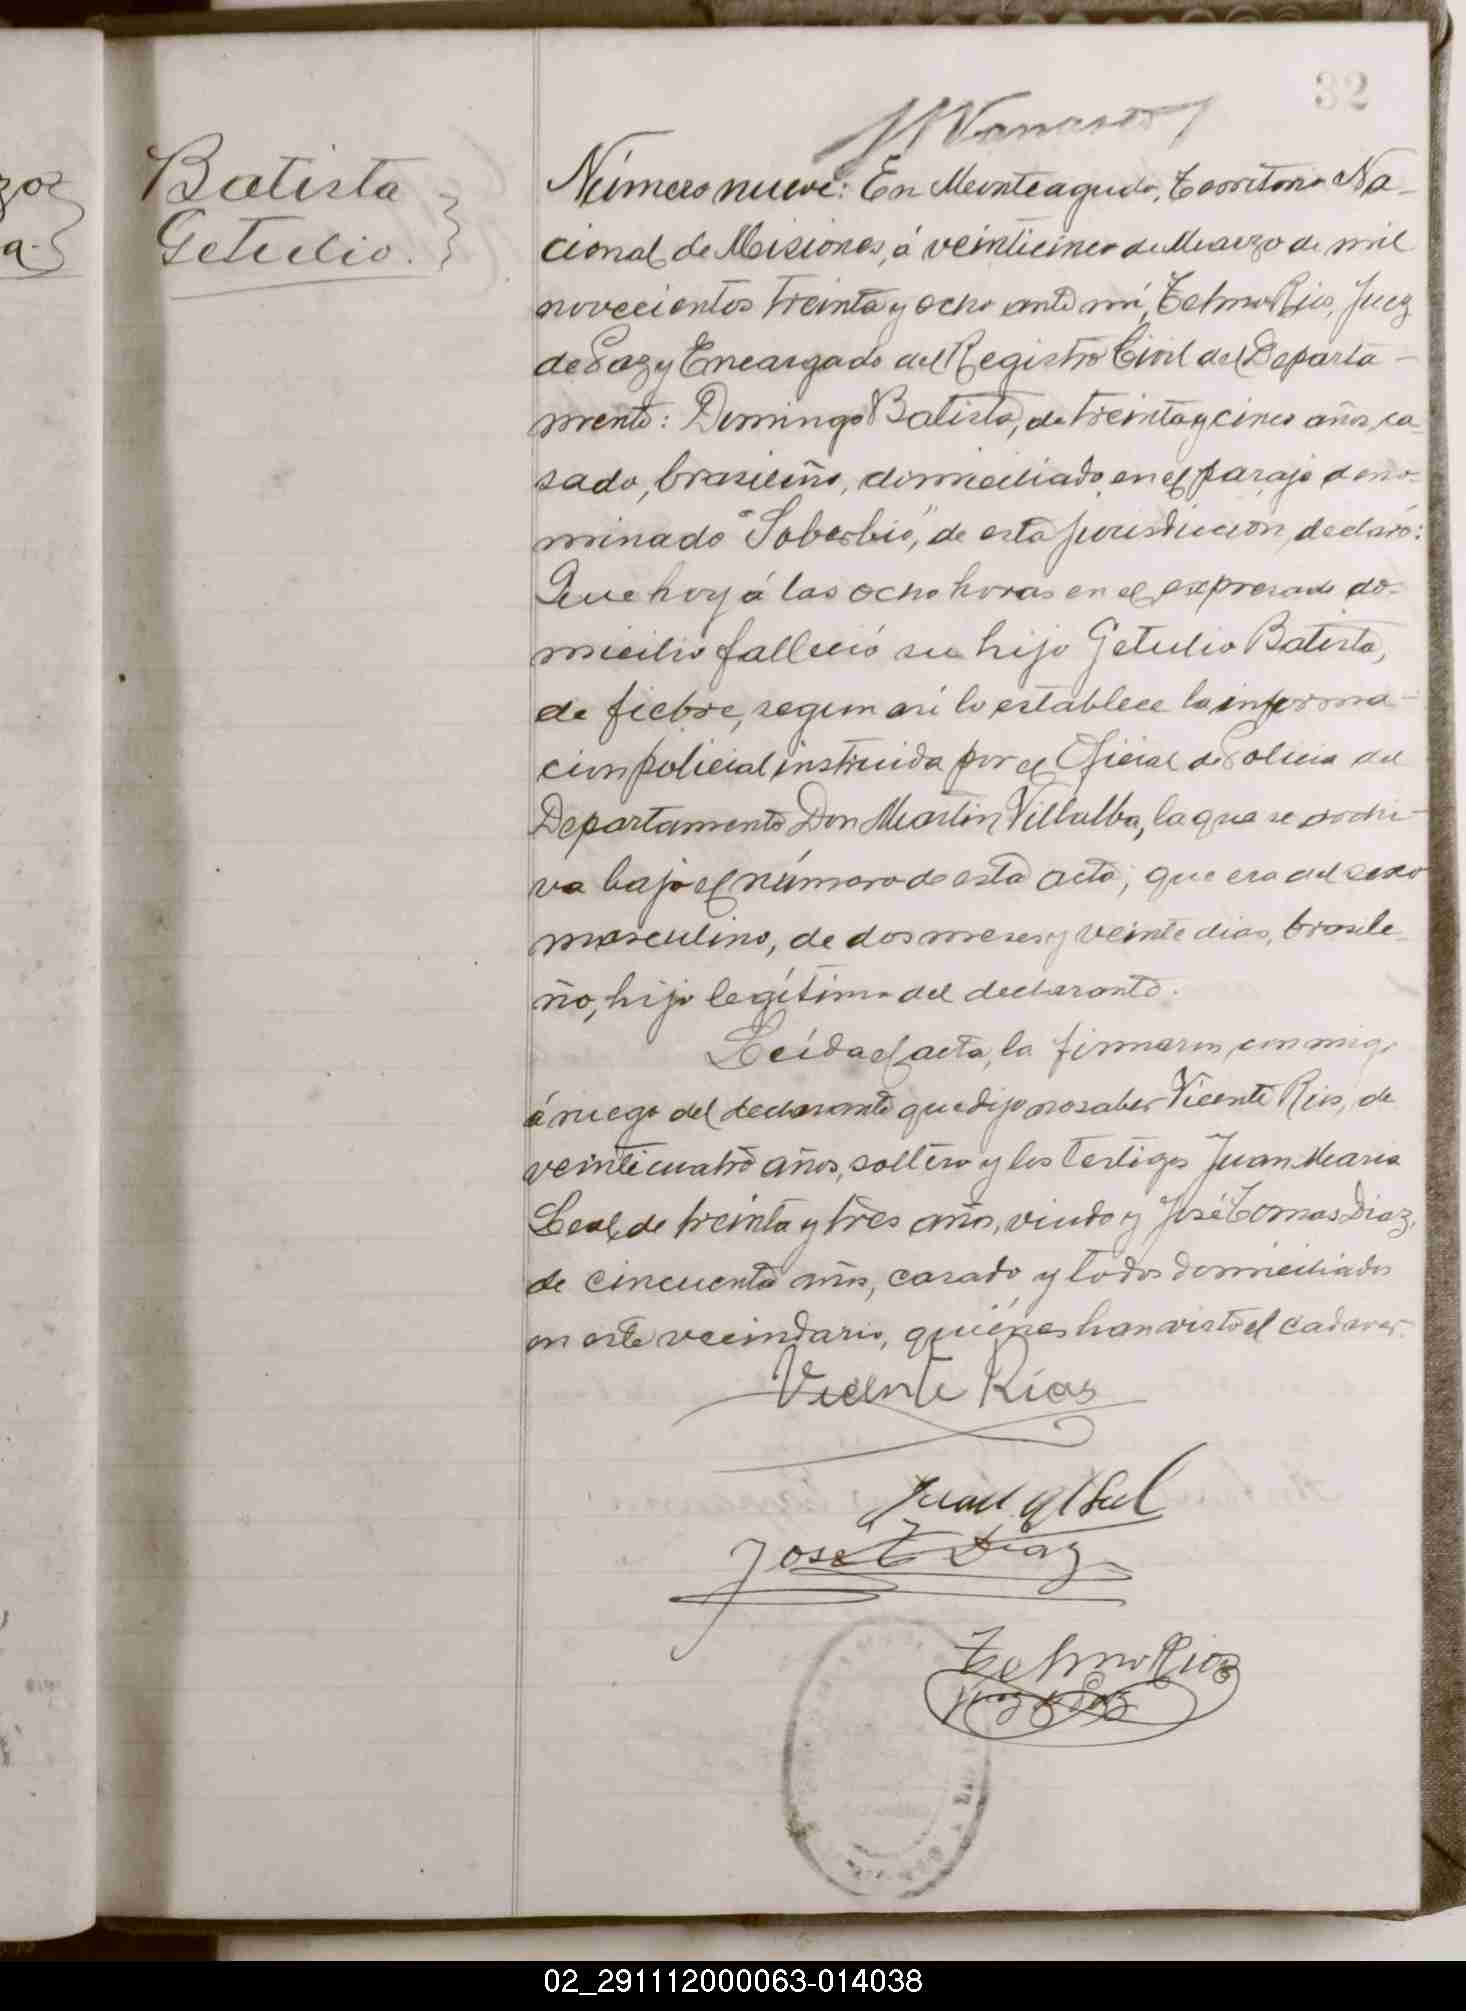 32
Batista
Getulio.
Número nueve: En Monteagudo, Territorio Na-
cional de Misiones, á veinticinco de Marzo de mil
novecientos treinta y ocho ante mí, Telmo Rios, Juez
de Paz y Encargado del Registro Civil del Departa-
mento: Domingo Batista, de treinta y cinco años, ca-
sado, brasileño, domiciliado en el paraje deno-
minado "Soberbio", de esta jurisdiccion, declaró:
Que hoy á las ocho horas en el expresado do-
micilio falleció su hijo Getulio Batista,
de fiebre, segun asi lo establece la informa-
cion policial instruida por el Oficial de Policia del
Departamento Don Martin Villalba, la que se archi-
va bajo el número de esta acta; que era del sexo
masculino, de dos meses y veinte dias, brasile-
ño, hijo legítimo del declarante.
Leída el acta, la firmaron conmigo
á ruego del declarante que dijo no saber Vicente Rios, de
veinticuatro años, soltero y los testigos Juan Maria
Leal, de treinta y tres años, viudo y José Tomas Diaz,
de cincuenta años, casado, y todos domiciliados
en este vecindario, quiénes han visto el cadaver.
Vicente Rios
Juan M Leal
José T Diaz
Telmo Rios
Juez de Paz
02_291112000063-014038